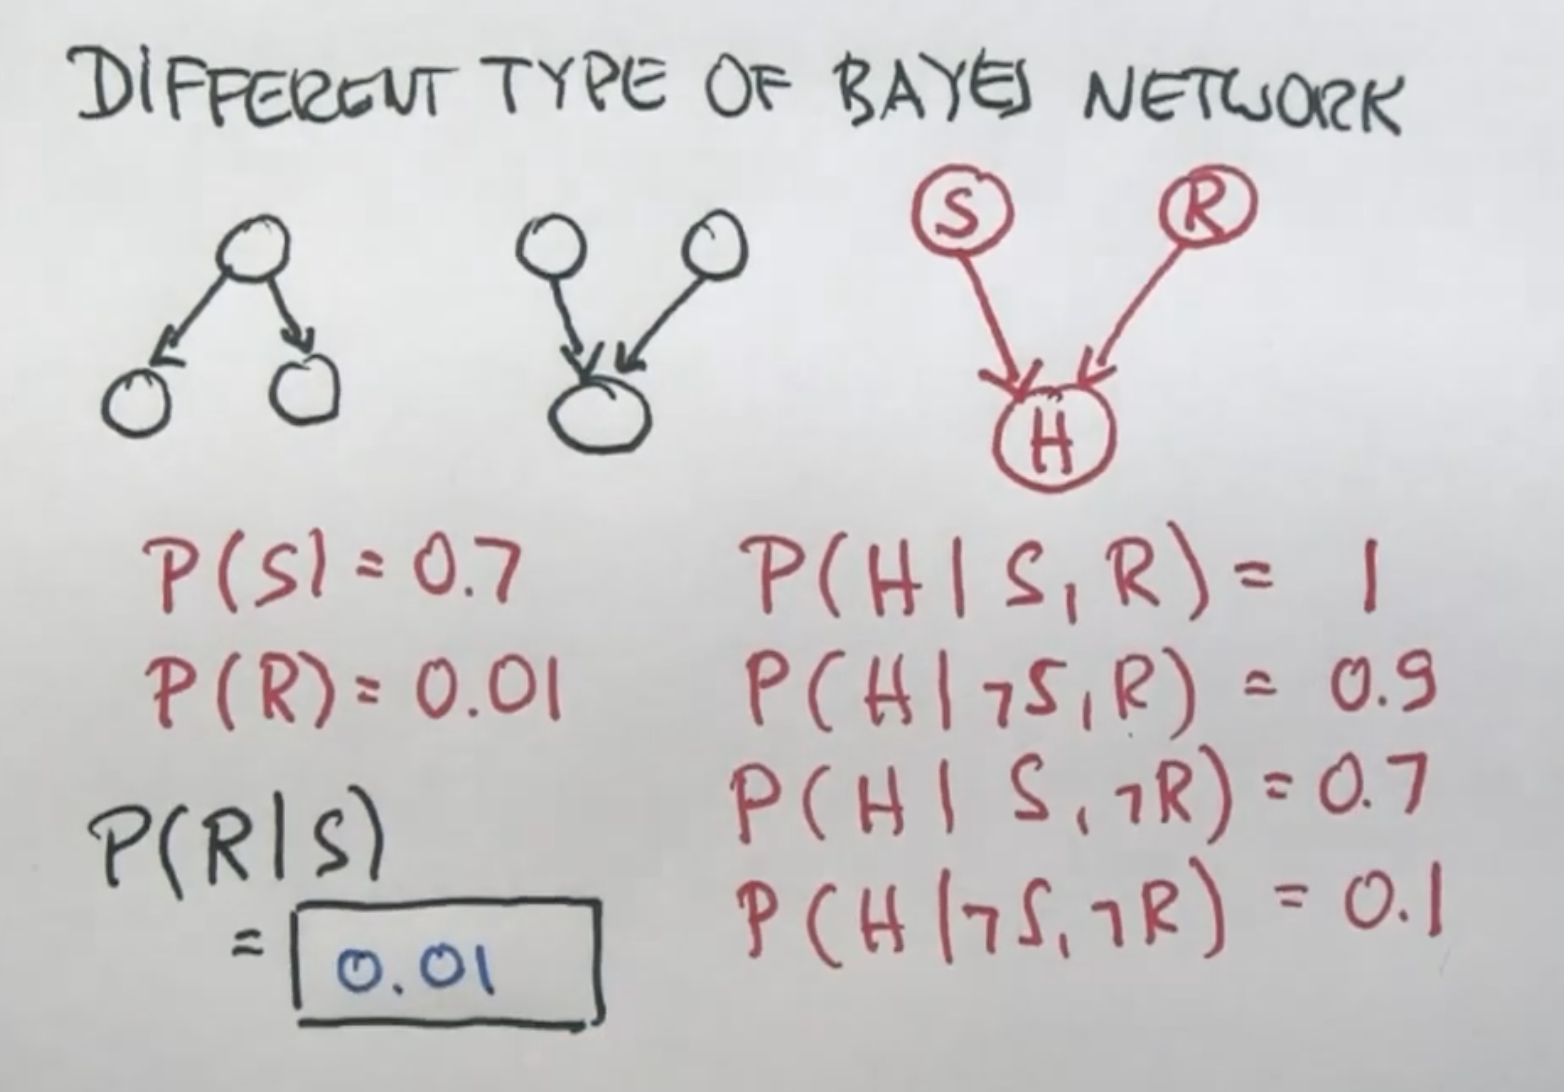 DIFFERENT TYPE OF BAYES NETWORK
S R
H
P(S) = 0.7
P(R) = 0.01
P(H | S, R) = 1
P(H | ¬S, R) = 0.9
P(H | S, ¬R) = 0.7
P(H | ¬S, ¬R) = 0.1
P(R | S)
= 0.01